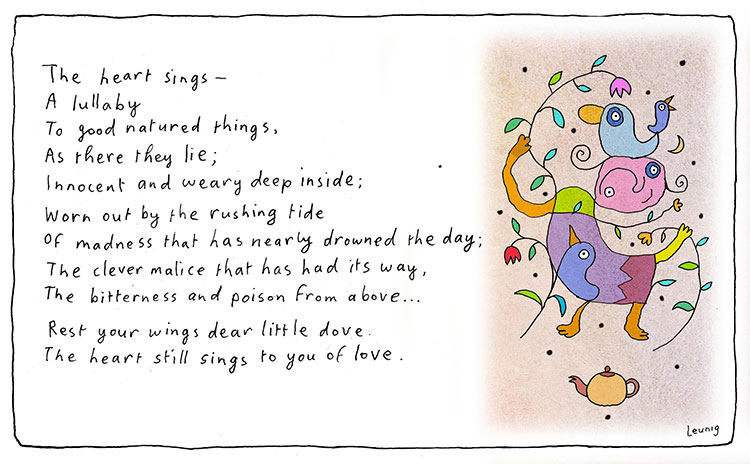 The heart sings –
A lullaby
To good natured things,
As there they lie;
Innocent and weary deep inside;
Worn out by the rushing tide
Of madness that has nearly drowned the day;
The clever malice that has had its way,
The bitterness and poison from above...
Rest your wings dear little dove.
The heart still sings to you of love.
Leunig